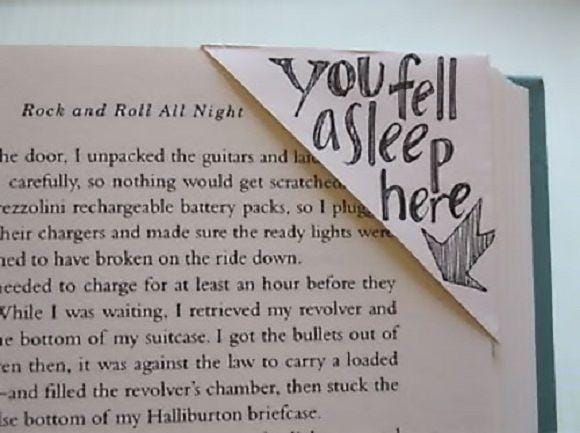 you fell
asleep
here
Rock and Roll All Night
he door, I unpacked the guitars and
carefully, so nothing would get scratched.
ezzolini rechargeable battery packs, so I plug
heir chargers and made sure the ready lights were
ned to have broken on the ride down.
needed to charge for at least an hour before they
While I was waiting, I retrieved my revolver and
e bottom of my suitcase. I got the bullets out of
en then, it was against the law to carry a loaded
—and filled the revolver's chamber, then stuck the
lse bottom of my Halliburton briefcase.